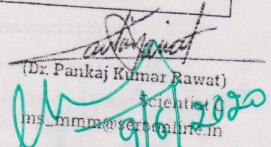 (Dr. Pankaj Kumar Rawat)
Scientist
ms_mmm@serbonline.in
9/6/2020